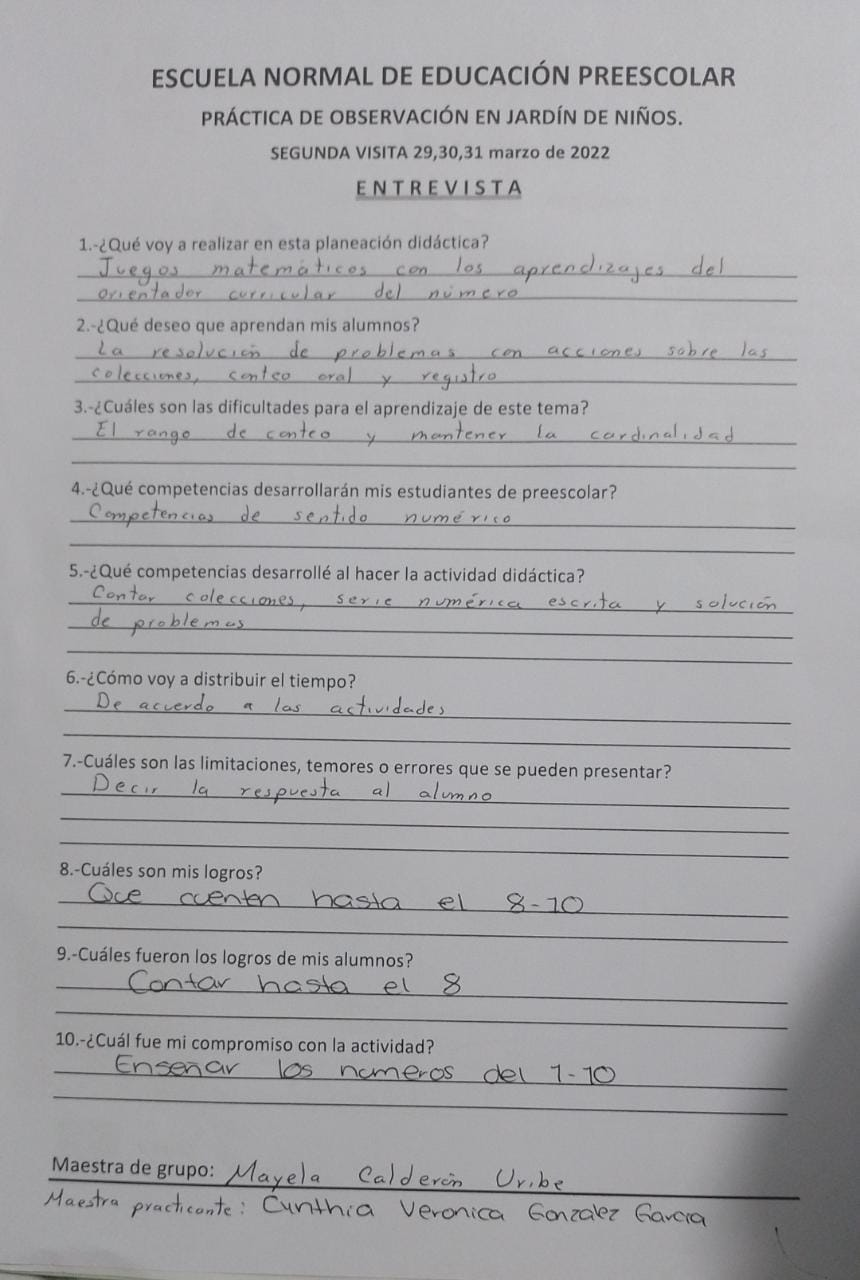 ESCUELA NORMAL DE EDUCACIÓN PREESCOLAR
PRÁCTICA DE OBSERVACIÓN EN JARDÍN DE NIÑOS.
SEGUNDA VISITA 29,30,31 marzo de 2022
ENTREVISTA
1.-¿Qué voy a realizar en esta planeación didáctica?
Juegos matemáticos con los aprendizajes del
orientador curricular del número
2.-¿Qué deseo que aprendan mis alumnos?
La resolución de problemas con acciones sobre las
colecciones, conteo oral y registro
3.-¿Cuáles son las dificultades para el aprendizaje de este tema?
El rango de conteo y mantener la cardinalidad
4.-¿Qué competencias desarrollarán mis estudiantes de preescolar?
Competencias de sentido numérico
5.-¿Qué competencias desarrollé al hacer la actividad didáctica?
Contar colecciones, serie numérica escrita y solución
de problemas
6.-¿Cómo voy a distribuir el tiempo?
De acuerdo a las actividades
7.-Cuáles son las limitaciones, temores o errores que se pueden presentar?
Decir la respuesta al alumno
8.-Cuáles son mis logros?
Que cuenten hasta el 8-10
9.-Cuáles fueron los logros de mis alumnos?
Contar hasta el 8
10.-¿Cuál fue mi compromiso con la actividad?
Enseñar los numeros del 1-10
Maestra de grupo: Mayela Calderón Uribe
Maestra practicante: Cynthia Veronica Gonzalez Garcia